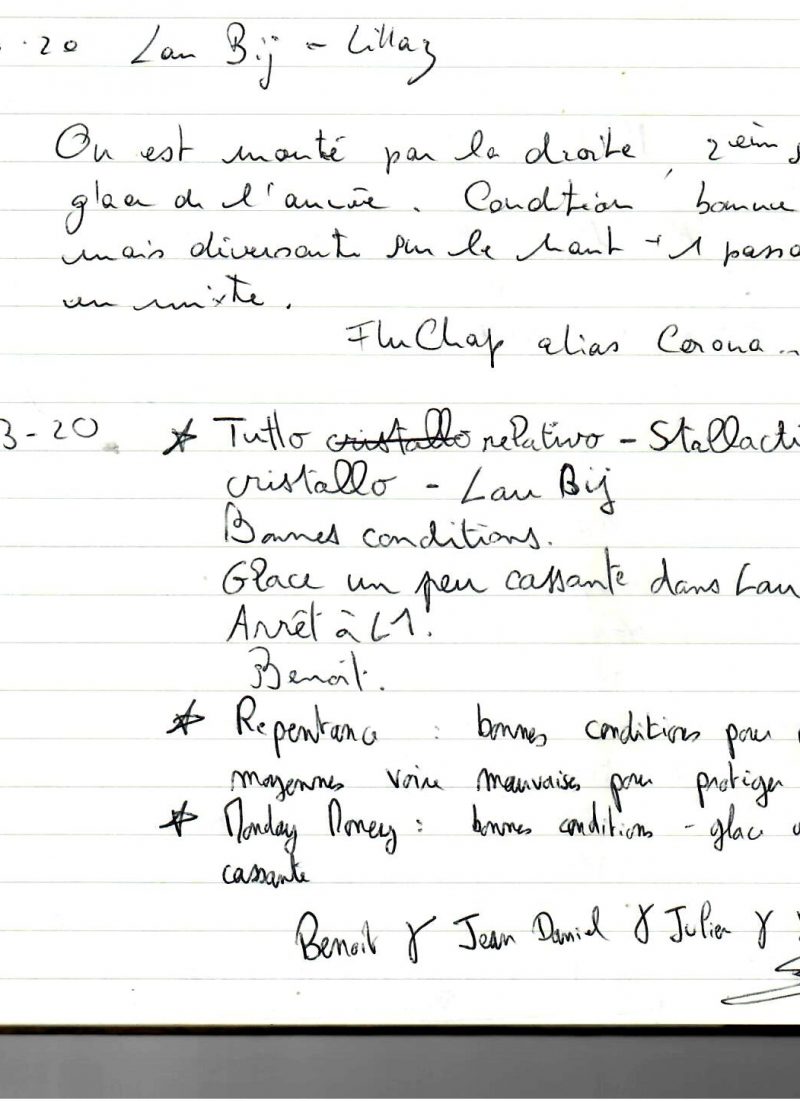 .20 Lau Bij - Lillaz
On est monté par la droite, 2eim
glace de l'année. Condition bonne
mais diversante sur le haut + 1 passa
en mixte.
FluChap alias Corona...
3-20 * Tutto cristallo relativo - Stallacti
cristallo - Lau Bij
Bonnes conditions.
Glace un peu cassante dans Lau
Arrêt à L1!
Benoît.
* Repentance : bonnes conditions pour
moyennes voire mauvaises pour protéger
* Monday Money : bonnes conditions - glace
cassante
Benoit & Jean Daniel & Julien &